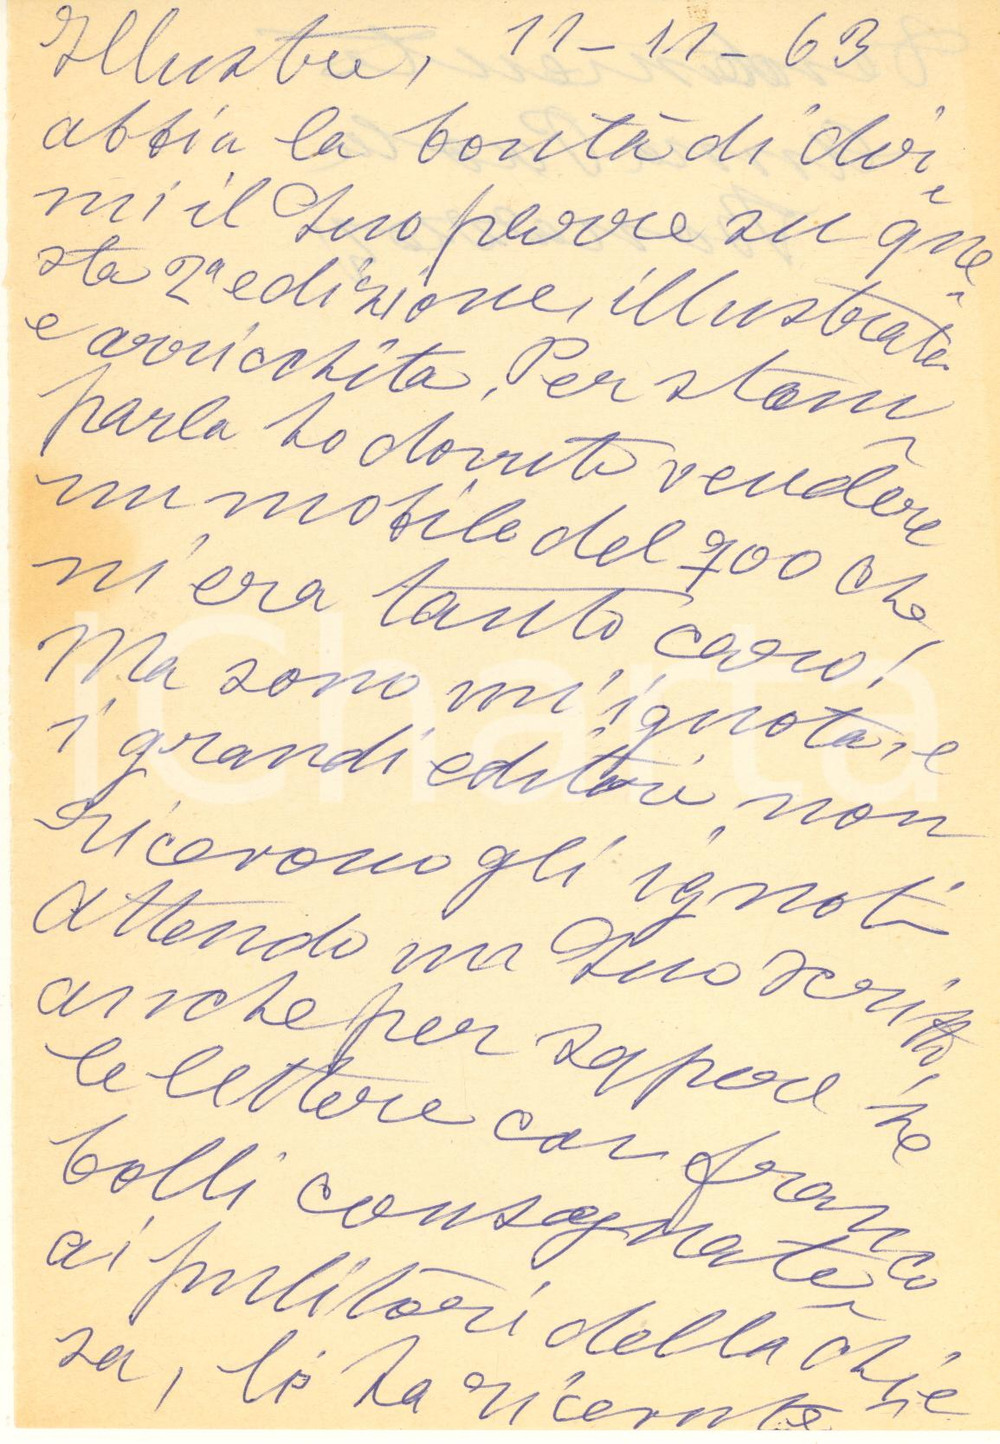 Illustre, 11-11-63
abbia la bontà di dir
mi il Suo parere su que
sta 2ª edizione, illustrata
e arricchita. Per stam
parla ho dovuto vendere
un mobile del 700 che
m'era tanto caro!
Ma sono un'ignota, e
i grandi editori non
ricevono gli ignoti
Attendo un Suo scritto,
anche per sapere se
le lettere con franco
bolli consegnate
ai pulitori della chie
sa, le ha ricevute
iCharta